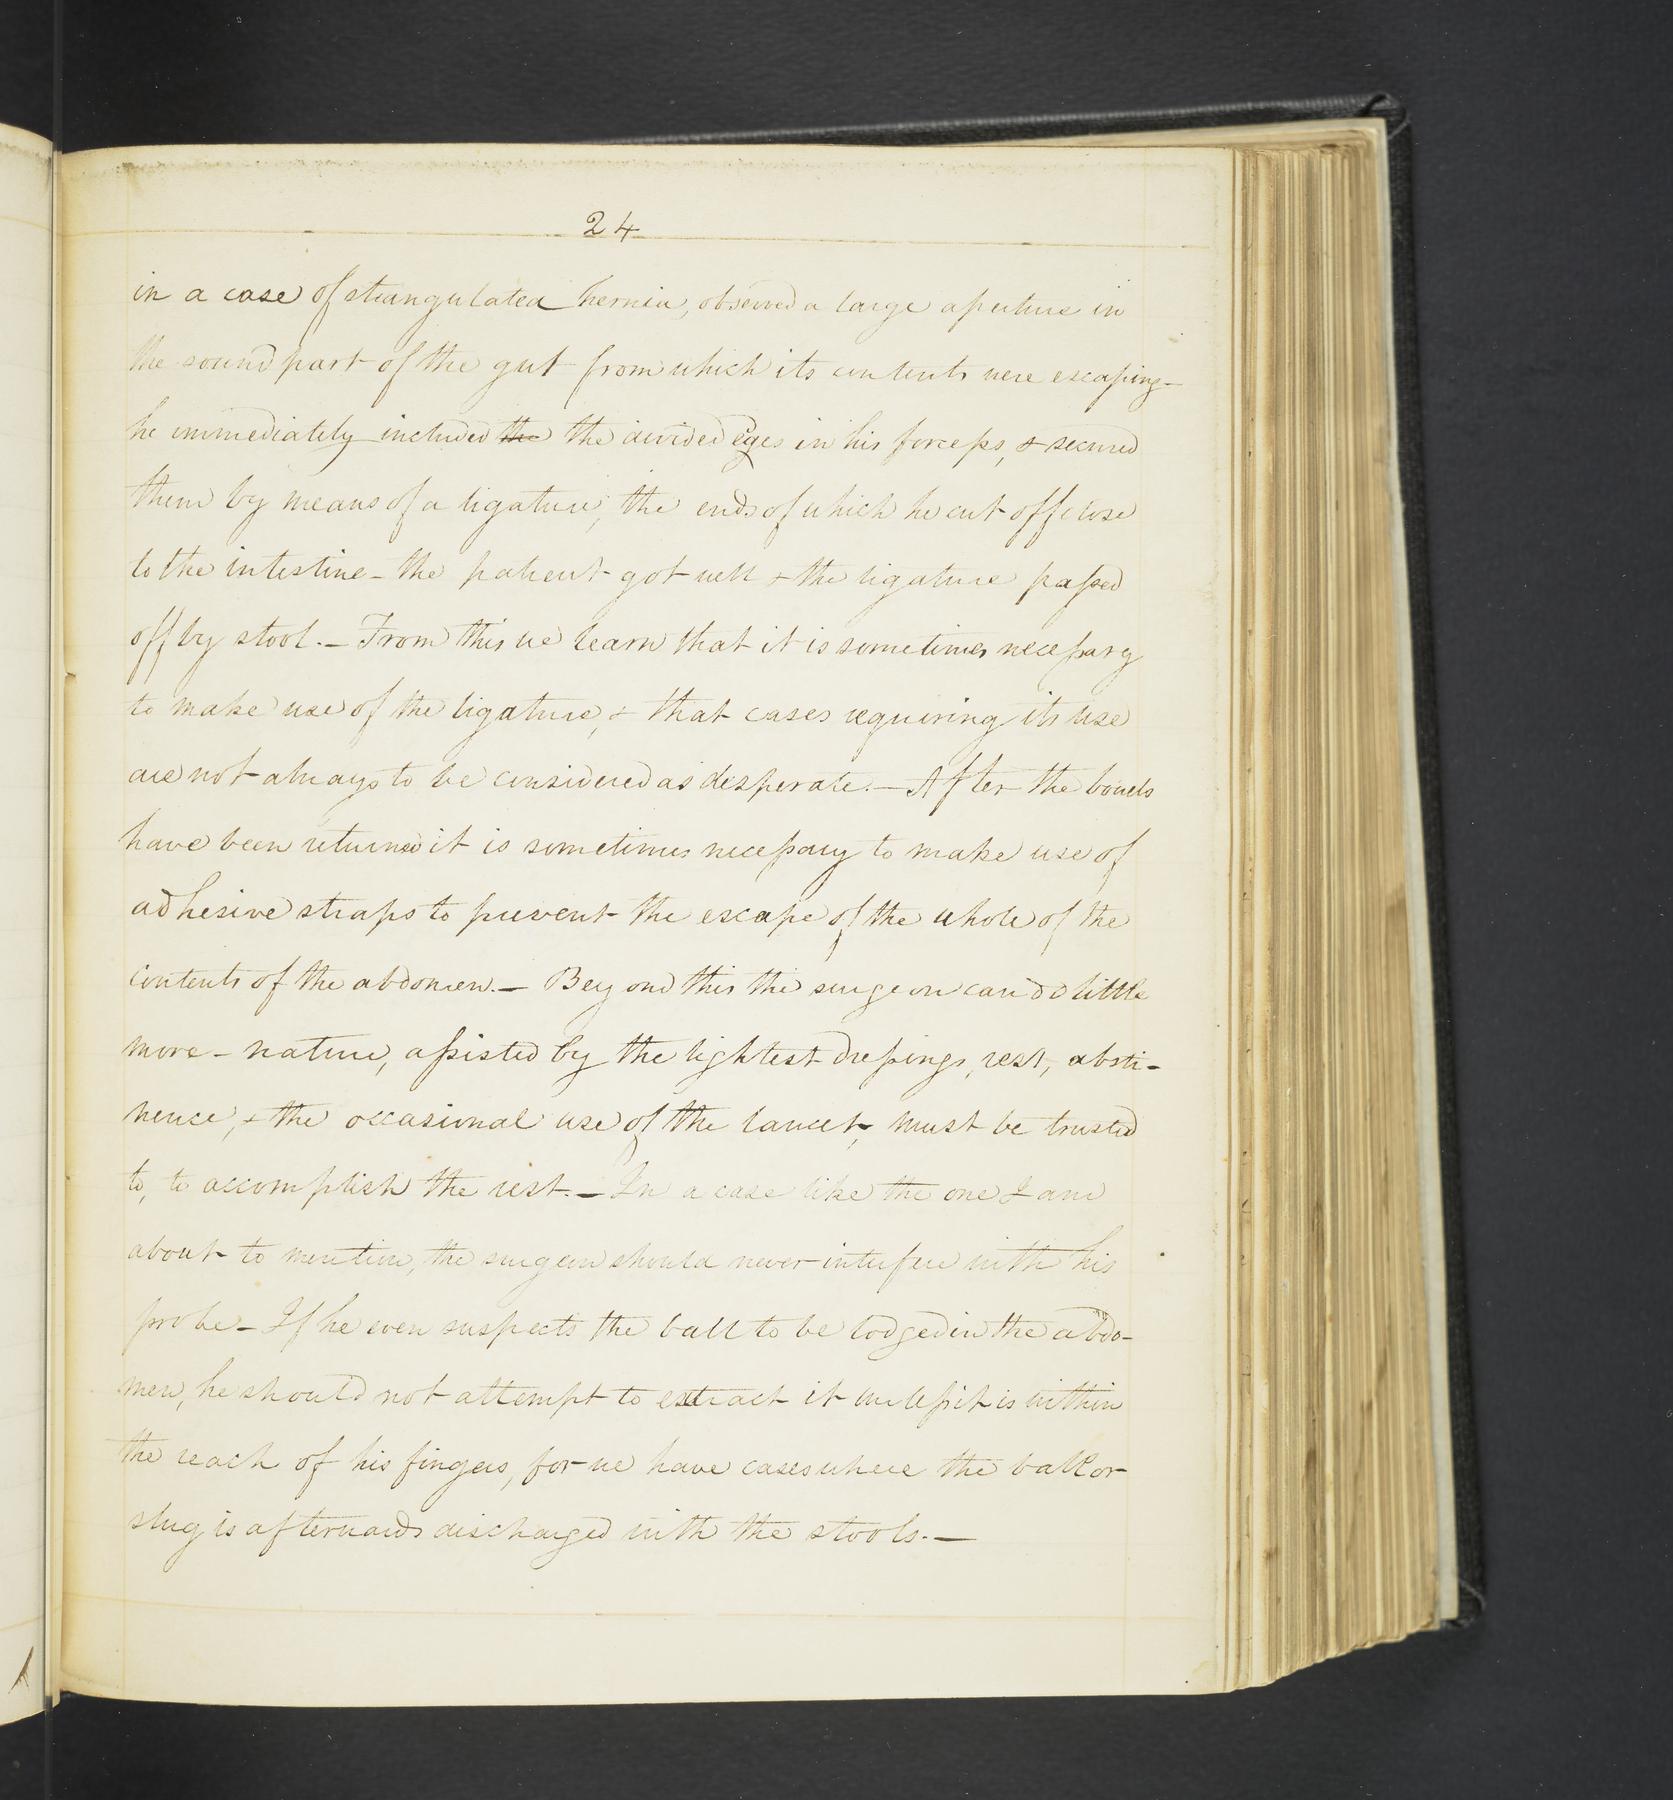 24
in a case of strangulated hernia, observed a large aperture in
the sound part of the gut from which its contents were escaping-
he immediately included the the divided edges in his forceps, & secured
them by means of a ligature, the ends of which he cut off close
to the intestine - the patient got well & the ligature passed
off by stool. - From this we learn that it is sometimes necessary
to make use of the ligature, & that cases requiring its use
are not always to be considered as desperate. - After the bowels
have been returned it is sometimes necessary to make use of
adhesive straps to prevent the escape of the whole of the
contents of the abdomen. - Beyond this the surgeon can do little
more - nature, assisted by the lightest dressings, rest, absti-
nence, & the occasional use of the lancet, must be trusted
to, to accomplish the rest. - In a case like the one I am
about to mention, the surgeon should never interfere with his
probe - If he even suspects the ball to be lodged in the abdo-
men, he should not attempt to extract it unless it is within
the reach of his fingers, for we have cases where the ball or
slug is afterwards discharged with the stools. -